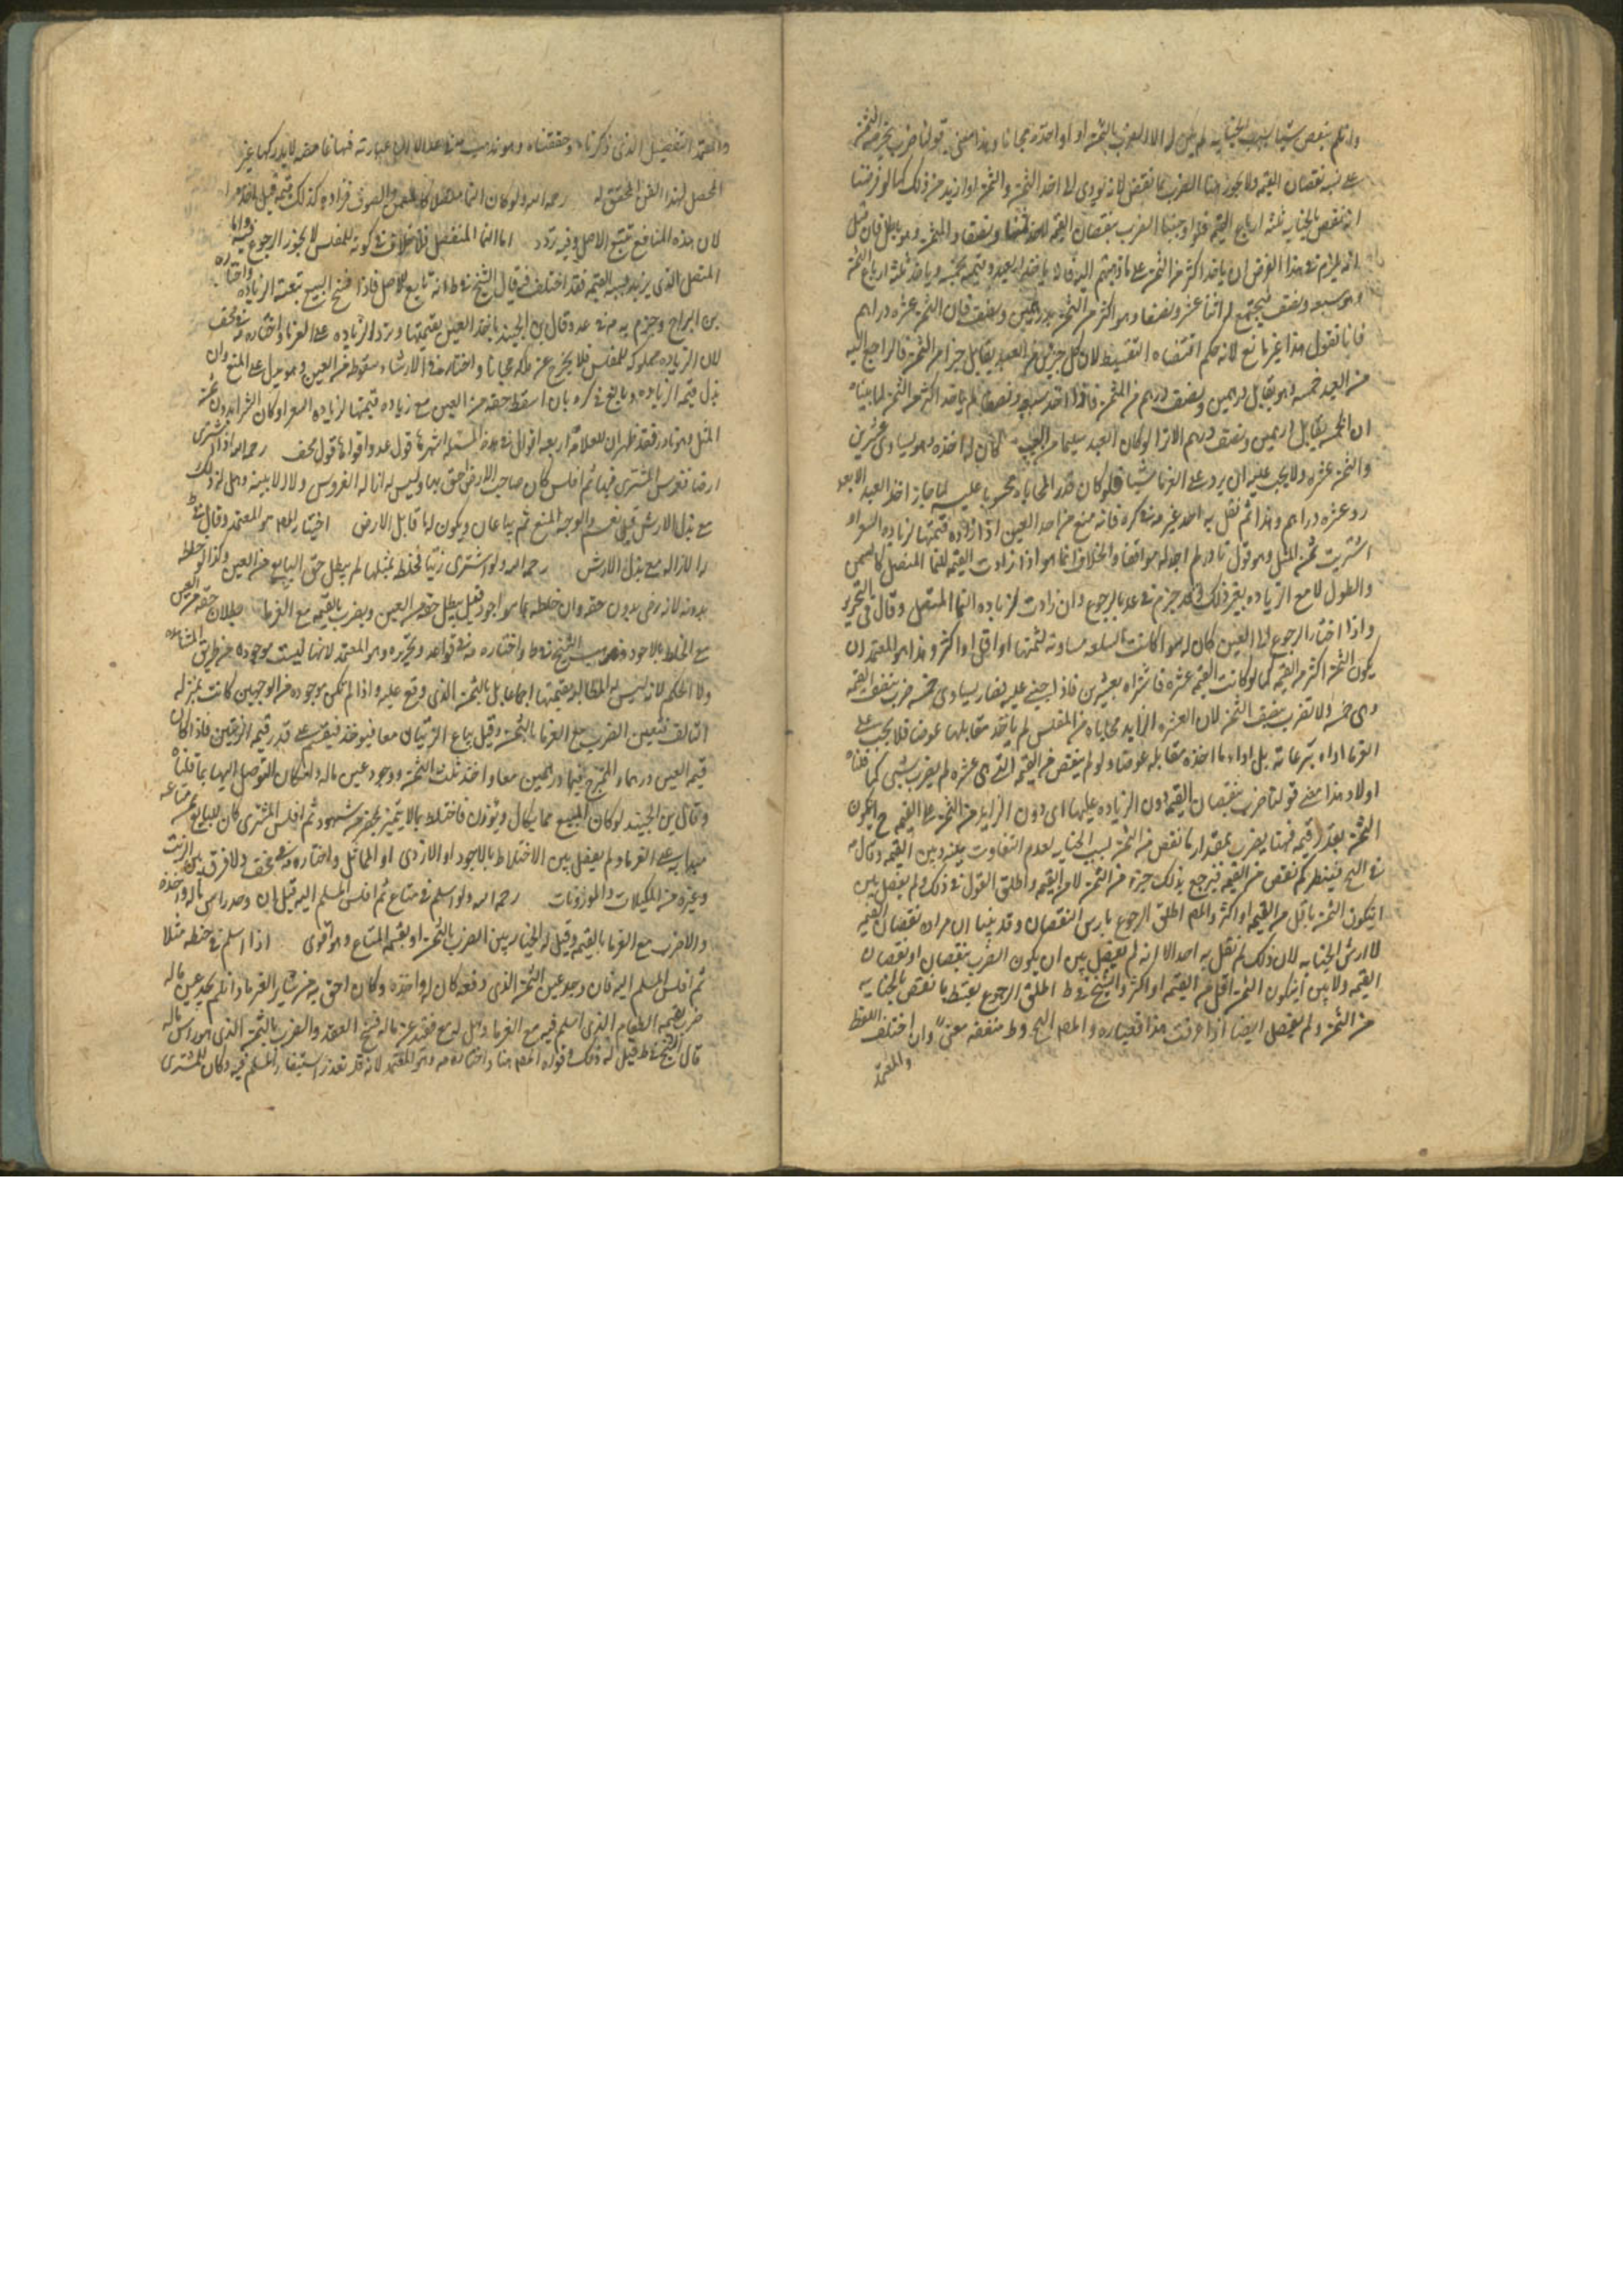 وان لم ينقص شيئا بسبب الجنايه لم يكن له الا الضرب بالثمن او اخذه مجانا وهذا معنى قولنا ضرب بجزء من الثمن
على نسبه نقصان القيمه ولا يجوز هنا الضرب بما نقص لانه يودى الى اخذ الثمن والمثمن او ازيد من ذلك كما لو فرضنا
انه نقص بالجنايه ثلثه ارباع القيمه فلو اوجبنا الضرب بنقصان القيمه لاخذ ونصفا والمثمن وهو باطل فان قيل
انه يلزم فى هذا الفرض ان ياخذ اكثر من الثمن على ما ذهبتم اليه فانه ياخذ العبد وقيمته خمسه وياخذ ثلثه ارباع الثمن
وهو سبعه ونصف فيجتمع له اثنا عشر ونصف وهو اكثر من الثمن بدرهمين ونصف فان الثمن عشره دراهم
فانا نقول هذا غير مانع لانه حكم اقتضاه التقسيط لان كل جزء من العبد يقابل جزءا من الثمن فالراجع اليه
من العبد خمسه وهو يقابل درهمين ونصف درهم من الثمن فاذا اخذ سبعه ونصفا لم ياخذ اكثر من الثمن لما بيناه
ان الخمسه يقابل درهمين ونصف درهم الا ترا لو كان العبد سليما من العيب كان له اخذه وهو يساوى عشرين
والثمن عشره ولا يجب عليه ان يرد على الغرما شيئا فلو كان قدر المحاباه محسوبا عليه لما جاز اخذ العبد الا بعد
رد عشره دراهم وهذا لم نقل به احد غيره فى كره فانه منع من اخذ العين اذا زاده قيمتها لزياده السعر او
اشتريت بدون ثمن المثل وهو قول نادر لم اجد له موافقا والخلاف انما هو اذا زادت القيمه للنما المتصل كالسمن
والطول لا مع الزياده بغير ذلك وقد جزم فى عد بالرجوع وان زادت لزياده النما المتصل وقال فى التحرير
واذا اختار الرجوع الى العين كان له سوا كانت السلعه مساويه لثمنها او اقل او اكثر وهذا هو المعتمد ان
يكون الثمن اكثر من القيمه كما لو كانت القيمه عشره فاشتراه بعشرين فاذا جنى عليه فصار يساوى خمسه ضرب بنصف القيمه
وهى خمسه ولا تضرب بنصف الثمن لان العشره الزايده محاباه من المفلس لم ياخذ مقابلها عوضا فلا يجب على
الغرما اداء تبرعاته بل اداء ما اخذه مقابله عوضا ولو لم ينقص من القيمه التى هى عشره لم يضرب بشى كما قلناه
اولا وهذا معنى قولنا ضرب بنقصان القيمه دون الزياده عليها اى دون الزايد من الثمن على القيمه ح ان يكون
الثمن بقدر القيمه فهنا يضرب بمقدار ما نقص من الثمن بسبب الجنايه لعدم التفاوت بينه وبين القيمه وقال
فى فينظر كم نقص من القيمه فيرجع بذلك جزء من الثمن لا من القيمه واطلق القول فى ذلك ولم يفصل بين
ان يكون الثمن باقل من القيمه او اكثر والمص اطلق الرجوع بارش النقصان وقد بينا ان مراده نقصان القيمه
لا ارش الجنايه لان ذلك لم نقل به احد الا انه لم يفصل بين ان يكون الضرب بنقصان او نقصان
القيمه ولا بين ان يكون الثمن اقل من القيمه او اكثر والشيخ فى ط اطلق الرجوع بقسط ما نقص بالجنايه
من الثمن ولم يفصل ايضا اذا عرفت هذا فعباره المص والشيخ فى ط متفقه معنى وان اختلف اللفظ
والمعتمد
والمعتمد التفصيل الذى ذكرناه وحققناه وهو مذهب فى عد الا ان عبارته فيها غامضه لا يدركها غير
المحصل لهذا الفن المحقق له رحمه الله ولو كان النما متصلا كالسمن والصوف فزاده كذلك قيمته قيل له اخذه
لان هذه المنافع تتبع الاصل وفيه تردد اما النما المنفصل فلا خلاف فى كونه للمفلس لا يجوز الرجوع فيه واما
المتصل الذى يزيد بسببه القيمه فقد اختلف فيه قال الشيخ فى ط انه تابع للاصل فاذا فسخ البيع تبعته الزياده واختاره
بن البراج وجزم به فى عد وقال بن الجنيد ياخذ العين بقيمتها ويرد الزياده على الغرما واختاره فى لف
لان الزياده مملوكه للمفلس فلا يخرج عن ملكه مجانا واختار فى الارشاد سقوطه من العين وهو ميل الى المنع وان
بذل قيمه الزياده وبالغ فى كره بان اسقط حقه من العين مع زياده قيمتها لزياده السعر او كان الشرا بدون ثمن
المثل وهو نادر فقد ظهر ان للعلامه اربعه اقوال فى هذه المسئله اشهرها قول عد واقواها قول لف رحمه الله اذا اشترى
ارضا فغرس المشترى فيها ثم افلس كان صاحب الارض احق بها وليس له ازاله الغروس ولا الابنيه وهل له ذلك
مع بذل الارش قيل نعم والوجه المنع ثم يباعان ويكون له ما قابل الارض اختيار المص هو المعتمد وقال فى ط
له الازاله مع بذل الارش رحمه الله ولو اشترى زيتا فخلط بمثله لم يبطل حق البايع من العين وكذا لو خلطه
بدونه لانه رضى بدون حقه وان خلطه بما هو اجود قيل يبطل حقه من العين ويضرب بالقيمه مع الغرما بطلان حقه من العين
مع الخلط بالاجود مذهب الشيخ فى ط واختاره فى قواعده وتحريره وهو المعتمد لانها ليست موجوده من طريق المشاهده
ولا الحكم لانه ليس له المطالبه بقيمتها اجماعا بل بالثمن الذى وقع عليه واذا لم تكن موجوده من الوجهين كانت بمنزله
التالف فتعين الضرب مع الغرما بالثمن وقيل يباع الزيتان معا فيوخذ فيقسم على قدر قيمه الزيتين فاذا كان
قيمه العين درهما والممتزج فيها درهمين معا واخذ ثلث الثمن ووجود عين ماله وامكان التوصل اليها بما قلناه
وقال بن الجنيد لو كان المبيع مما يكال ويوزن فاختلط بما لا يتميز بمحضر من شهود ثم افلس المشترى كان للبايع ثمن متاعه
مبدا به على الغرما ولم يفصل بين الاختلاط بالاجود او الاردى او المماثل واختاره فى لف ولا فرق بين الزيت
وغيره من المكيلات والموزونات رحمه الله ولو اسلم فى متاع ثم افلس المسلم اليه قيل ان وجد راس ماله اخذه
والا ضرب مع الغرما بالقيمه وقيل له الخيار بين الضرب بالثمن او بقيمه المتاع وهو اقوى اذا اسلم فى حنطه مثلا
ثم افلس المسلم اليه فان وجد عين الثمن الذى دفعه كان له اخذه وكان احق به من ساير الغرما وان لم يجد عين ماله
ضرب بقيمه الطعام الذى اسلم فيه مع الغرما وهل له مع فقد عين ماله فسخ العقد والضرب بالثمن الذى هو راس ماله
قال الشيخ فى ط قيل له ذلك وقواه المص هنا واختاره وهو المعتمد لانه قد تعذر استيفاء المسلم فيه وكان للمشترى